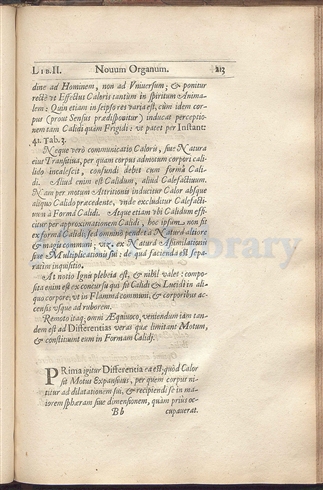 LIB. II. Novum Organum. 213
dine ad Hominem, non ad Vniuersum; & ponitur
rectè vt Effectus Caloris tantùm in spiritum Anima-
lem: Quin etiam in seipso res varia est, cùm idem cor-
pus (prout Sensus prædisponitur) inducat perceptio-
nem tam Calidi quàm Frigidi: vt patet per Instant:
41. Tab. 3.
Neque verò communicatio Caloris, siue Natura
eius Transitiua, per quam corpus admotum corpori cali-
do incalescit, confundi debet cum formâ Cali-
di. Aliud enim est Calidum, aliud Calefactiuum.
Nam per motum Attritionis inducitur Calor absque
aliquo Calido præcedente, vnde excluditur Calefacti-
uum à Formâ Calidi. Atque etiam vbi Calidum effi-
citur per approximationem Calidi, hoc ipsum non fit
ex formâ Calidi; sed omninò pendet à Naturâ altiore
& magis communi; viz. ex Naturâ Assimilationis
siue Multiplicationis sui: de quâ facienda est sepa-
ratim inquisitio.
At notio Ignis plebeia est, & nihil valet: compo-
sita enim est ex concursu qui fit Calidi & Lucidi in ali-
quo corpore; vt in Flammâ communi, & corporibus ac-
censis vsque ad ruborem.
Remoto itaq; omni Æquiuoco, veniendum iam tan-
dem est ad Differentias veras quæ limitant Motum,
& constituunt eum in Formam Calidi.
PRima igitur Differentia ea est; quòd Calor
sit Motus Expansiuus, per quem corpus ni-
titur ad dilatationem sui, & recipiendi se in ma-
iorem sphæram siue dimensionem, quàm priùs oc-
Bb cupauerat.
Library